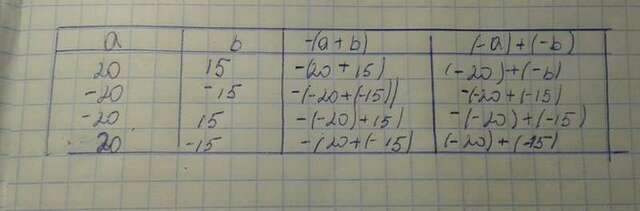 a b -(a+b) (-a)+(-b)
20 15 -(20+15) (-20)+(-b)
-20 -15 -(-20+(-15)) -(-20+(-15)
-20 15 -(-20)+15) -(-20)+(-15)
20 -15 -(20+(-15) (-20)+(-15)